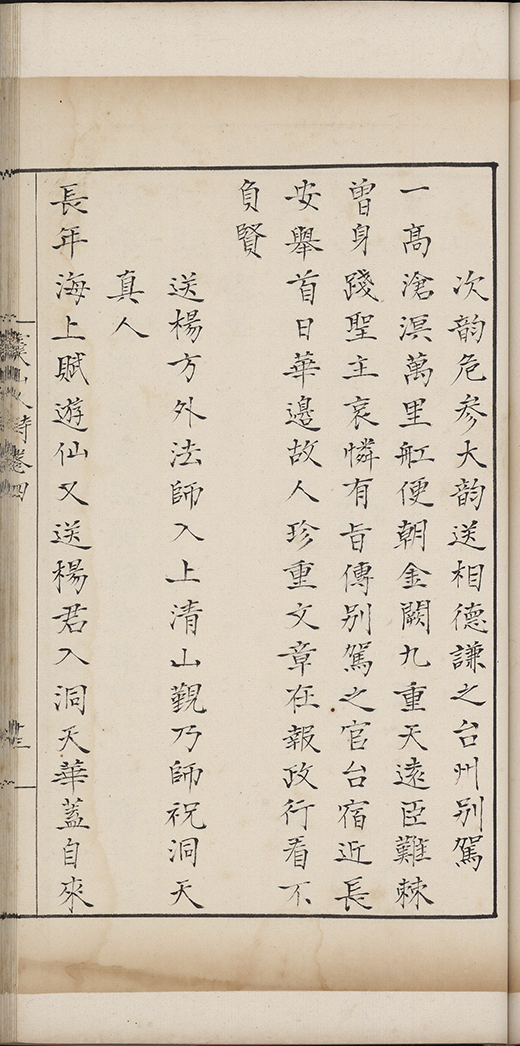 次韵危参大韵送相德謙之台州别駕
一髙滄溟萬里舡便朝金闕九重天遠臣難棘
曽身踐聖主哀憐有旨傳别駕之官台宿近長
安舉首日華邊故人珍重文章在報政行看不
負賢
送楊方外法師入上清山覲乃師祝洞天
真人
長年海上賦遊仙又送楊君入洞天華蓋自來
山人詩卷四